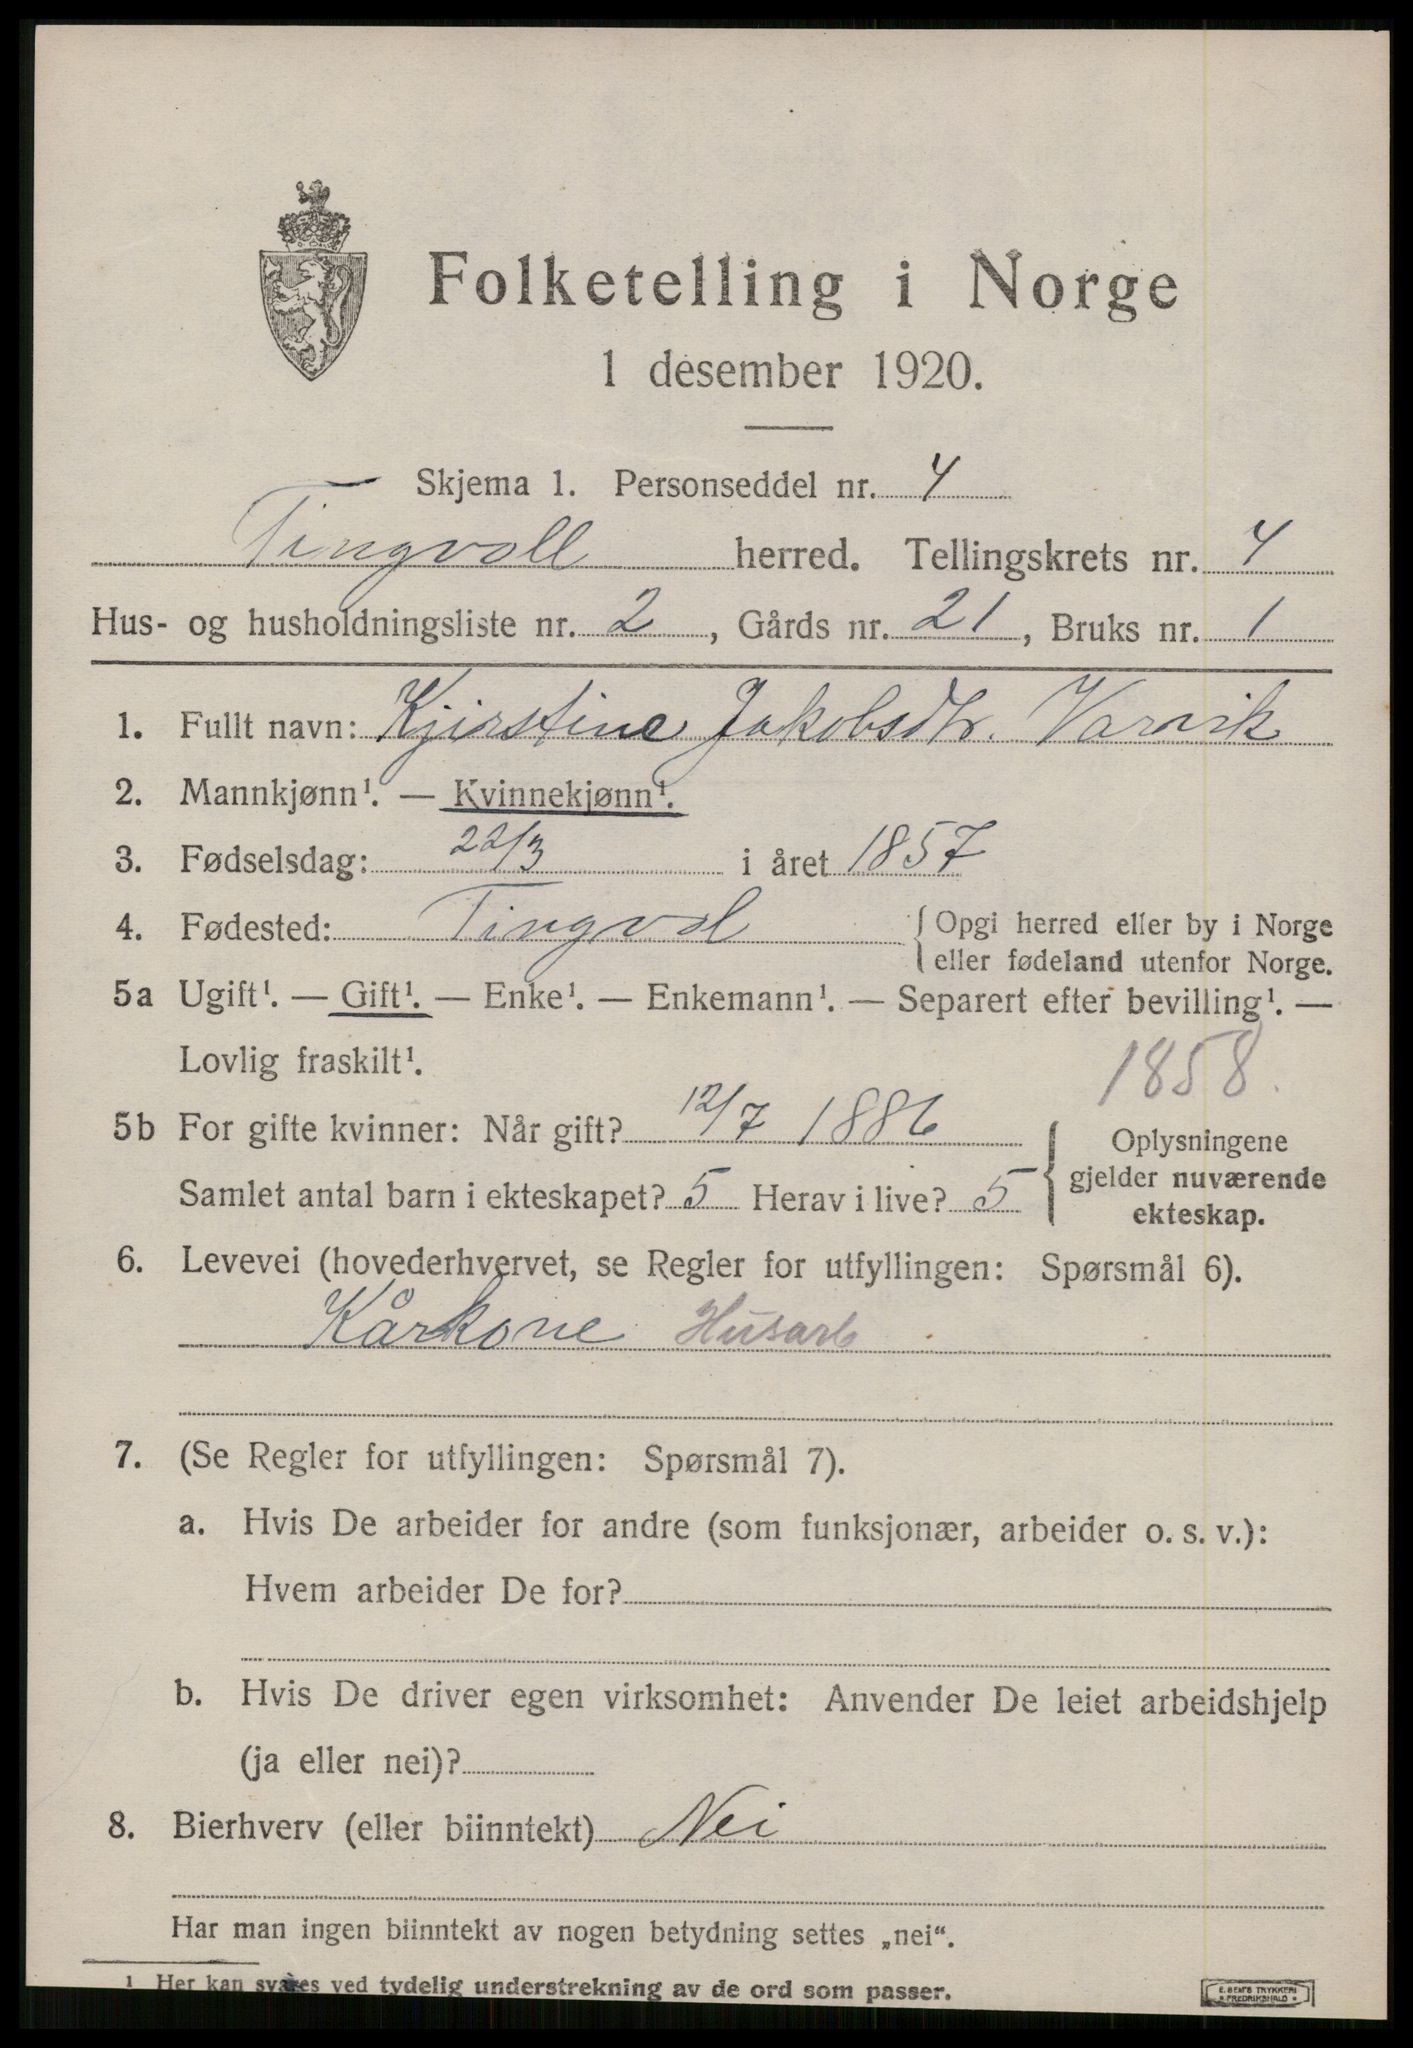 Folketelling i Norge
1 desember 1920.
Skjema 1. Personseddel nr. 4
Tingvoll herred. Tellingskrets nr. 4
Hus- og husholdningsliste nr. 2, Gårds nr. 21, Bruks nr. 1
1. Fullt navn: Kjirstine Jakobsdtr. Varvik
2. Mannkjønn¹. — Kvinnekjønn¹.
3. Fødselsdag: 22/3 i året 1857
4. Fødested: Tingvol { Opgi herred eller by i Norge
eller fødeland utenfor Norge.
5a Ugift¹. — Gift¹. — Enke¹. — Enkemann¹. — Separert efter bevilling¹. —
Lovlig fraskilt¹.
1858.
5b For gifte kvinner: Når gift? 12/7 1886
Samlet antal barn i ekteskapet? 5 Herav i live? 5
{ Oplysningene
gjelder nuværende
ekteskap.
6. Levevei (hovederhvervet, se Regler for utfyllingen: Spørsmål 6).
Kårkone Husarb
7. (Se Regler for utfyllingen: Spørsmål 7).
a. Hvis De arbeider for andre (som funksjonær, arbeider o. s. v.):
Hvem arbeider De for?
b. Hvis De driver egen virksomhet: Anvender De leiet arbeidshjelp
(ja eller nei)?
8. Bierhverv (eller biinntekt) Nei
Har man ingen biinntekt av nogen betydning settes „nei“.
1 Her kan svares ved tydelig understrekning av de ord som passer.
E. SEM'S TRYKKERI
FREDRIKSHALD